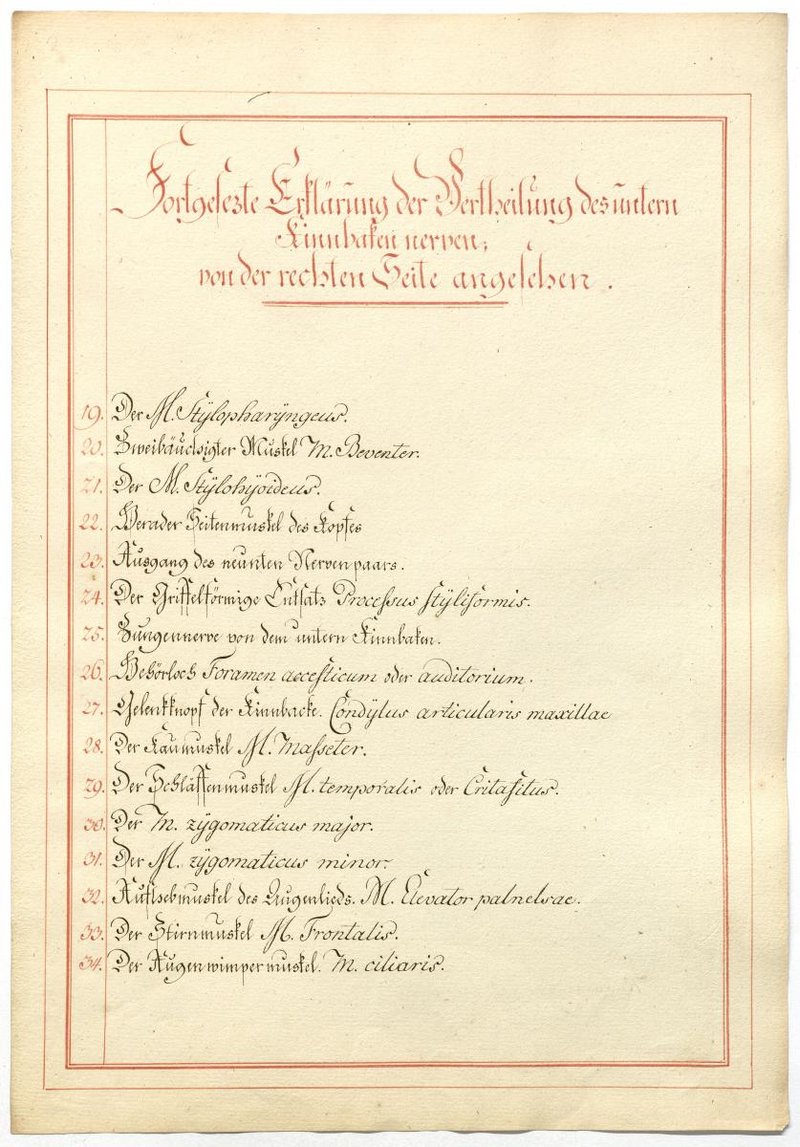 Fortgesezte Erklärung der Vertheilung des untern
Kinnbaken nerven,
von der rechten Seite angesehen.
19. Der M. Stÿlopharÿngeus.
20. Zweibäuchigter Muskel M. Beventer.
21. Der M. Stÿlohÿoideus.
22. Gerader Seitenmuskel des Kopfes
23. Ausgang des neunten Nervenpaars.
24. Der Griffelförmige Entsatz Processus stÿliformis.
25. Zungennerve von dem untern Kinnbaken.
26. Gehörloch Foramen accesticum oder auditorium.
27. Gelenkknopf der Kinnbacke. Condÿlus articularis maxillae
28. Der Kaumuskel M. Masseter.
29. Der Schläffenmuskel M. temporalis oder Critafitus.
30. Der M. zÿgomaticus major.
31. Der M. zÿgomaticus minor.
32. Aufhebmuskel des Augenlieds. M. Elevator palnelsae.
33. Der Stirnmuskel M. Frontalis.
34. Der Augenwimpermuskel. M. ciliaris.